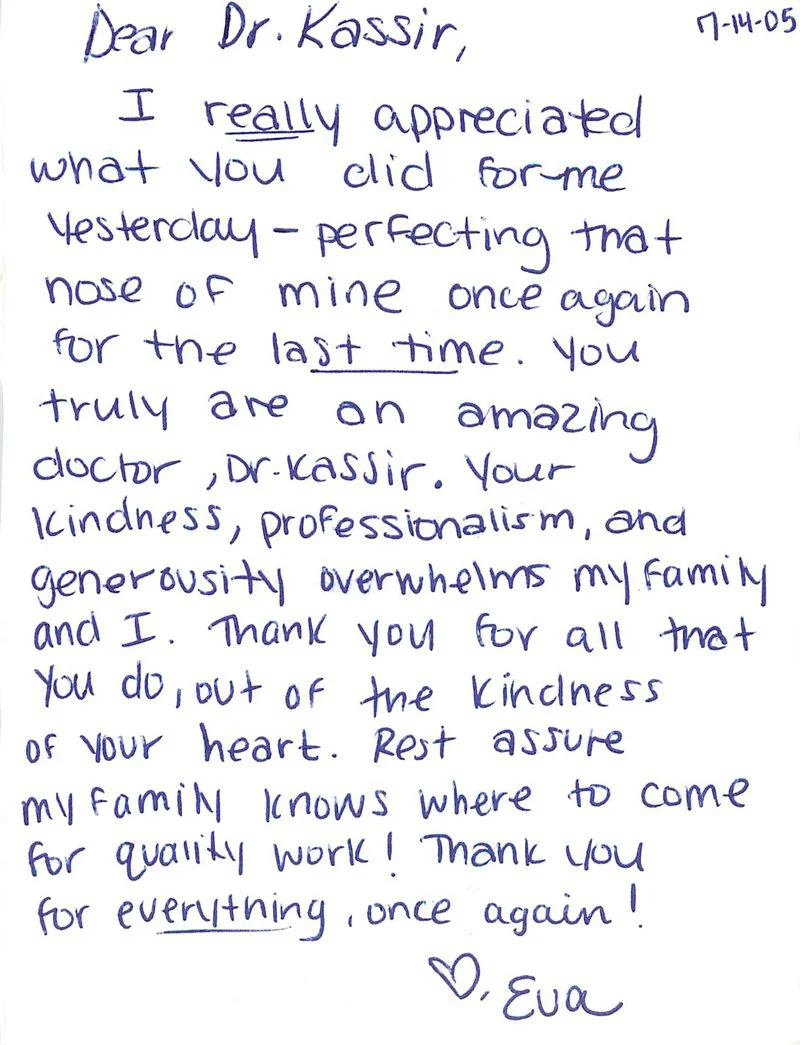 Dear Dr. Kassir, 7-14-05
I really appreciated
what you did for me
yesterday - perfecting that
nose of mine once again
for the last time. You
truly are an amazing
doctor, Dr. Kassir. Your
kindness, professionalism, and
generousity overwhelms my family
and I. Thank you for all that
you do, out of the kindness
of your heart. Rest assure
my family knows where to come
for quality work! Thank you
for everything, once again!
♡, Eva